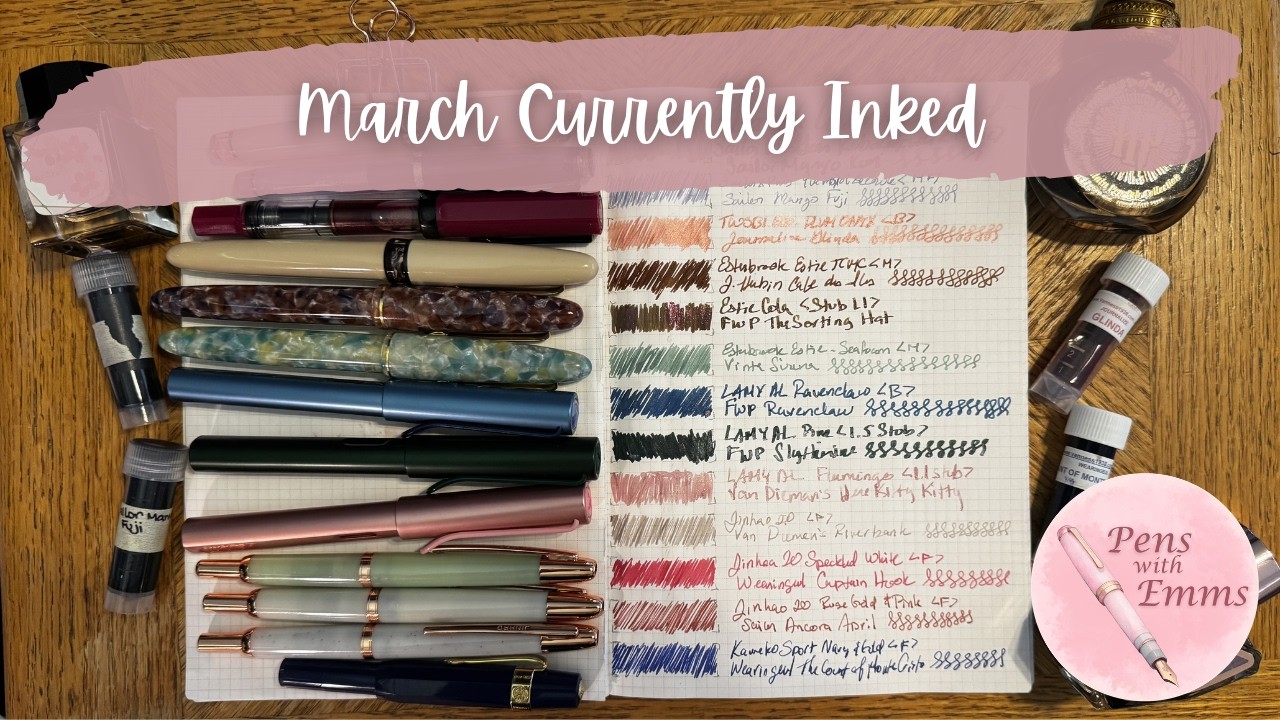 March Currently Inked
Sailor Manyo Fuji
TWSBI ECO PLUM ONYX <B>
Journalize Glinda
Esterbrook Estie <M>
J. Herbin Café des Iles
Estie Cola <Stub 1.1>
FWP The Sorting Hat
Esterbrook Estie - Seafoam <M>
Vinta Sirena
LAMY AL Ravenclaw <B>
FWP Ravenclaw
LAMY AL Pine <1.5 Stub>
FWP Slytherine
LAMY AL Flamingo <1.1 stub>
Van Dieman's Here Kitty Kitty
Jinhao 20 <F>
Van Diemen's Riverbank
Jinhao 20 Speckled White <F>
Wearingeul Captain Hook
Jinhao 20 Rose Gold & Pink <F>
Sailor Ancora April
Kaweko Sport Navy & Gold <F>
Wearingeul The Count of Monte Cristo
Fuji
GLINDA
Pens
with
Emms